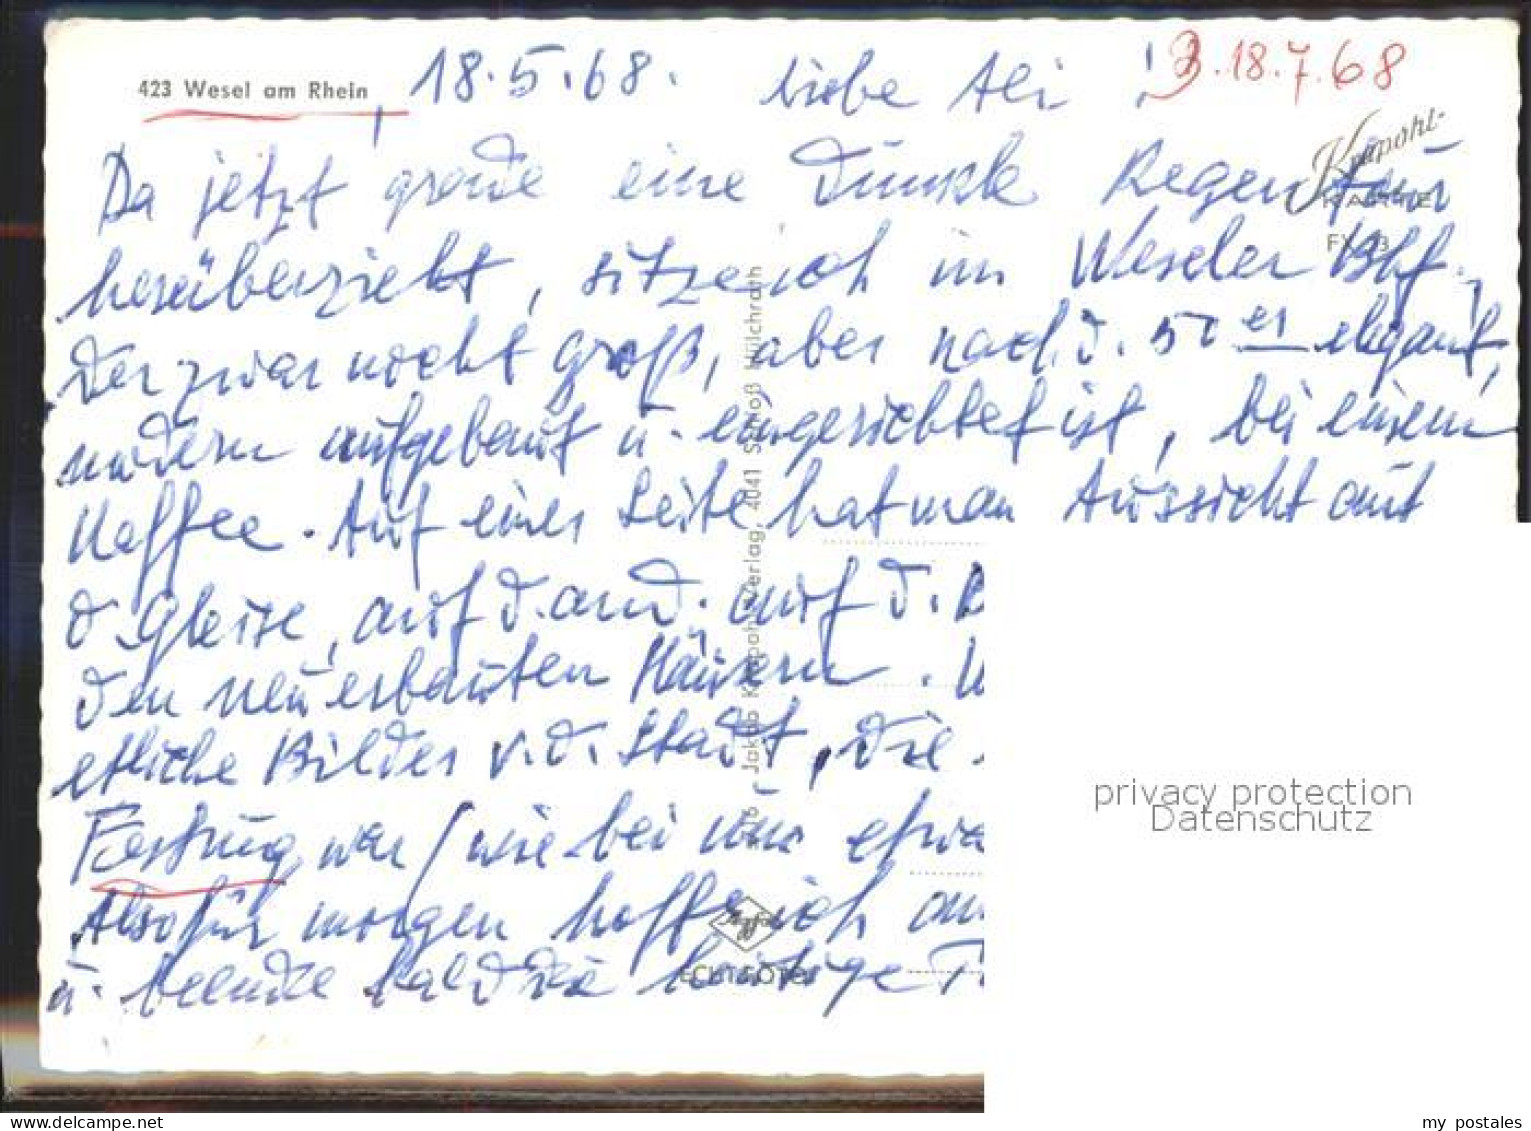 423 Wesel am Rhein, 18.5.68. Liebe Ali! 3.18.7.68
Krapohl-
KARTE
Da jetzt grade eine dunkle Regen
herüberzieht, sitze ich im Weseler Bhf.,
der zwar nicht groß, aber nach d. 50er elegant,
modern aufgebaut u. eingerichtet ist, bei einem
Kaffee. Auf einer Seite hat man Aussicht auf
d. Gleise, auf d. and. auf d. B
den neuerbauten Häusern.
etliche Bilder v. d. Stadt, die
Festung war (wie bei uns etwa
Also für morgen hoffe ich
u. beende bald die heutige
Jakob Krapohl-Verlag, 4041 Schloß Hülchrath
Agfa
ECHT FOTO
privacy protection
Datenschutz
my postales